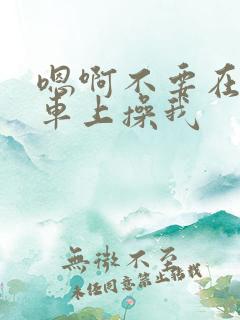 嗯啊不要在
車上操我
無微不至
未经同意禁止搭我